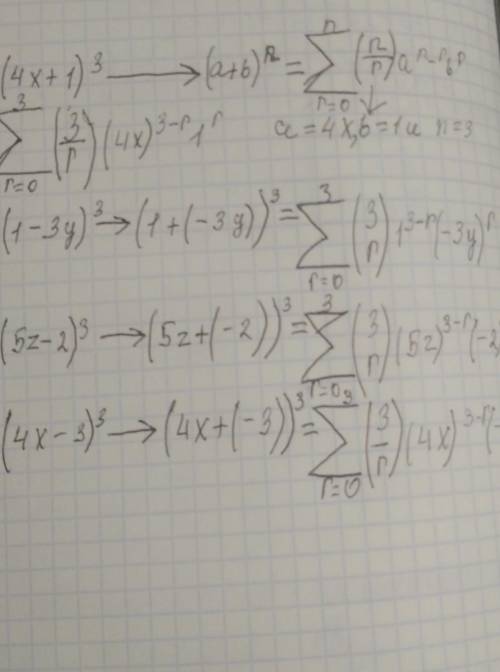 (4x+1)³ → (a+b)ⁿ = ∑_{r=0}^{n} (n/r) aⁿ⁻ʳ bʳ
∑_{r=0}^{3} (3/r) (4x)³⁻ʳ 1ʳ a = 4x, b = 1 и n = 3
(1-3y)³ → (1+(-3y))³ = ∑_{r=0}^{3} (3 r) 1³⁻ʳ (-3y)ʳ
(5z-2)³ → (5z+(-2))³ = ∑_{r=0}^{3} (3 r) (5z)³⁻ʳ (-2
(4x-3)³ → (4x+(-3))³ = ∑_{r=0}^{3} (3/r) (4x)³⁻ʳ (-